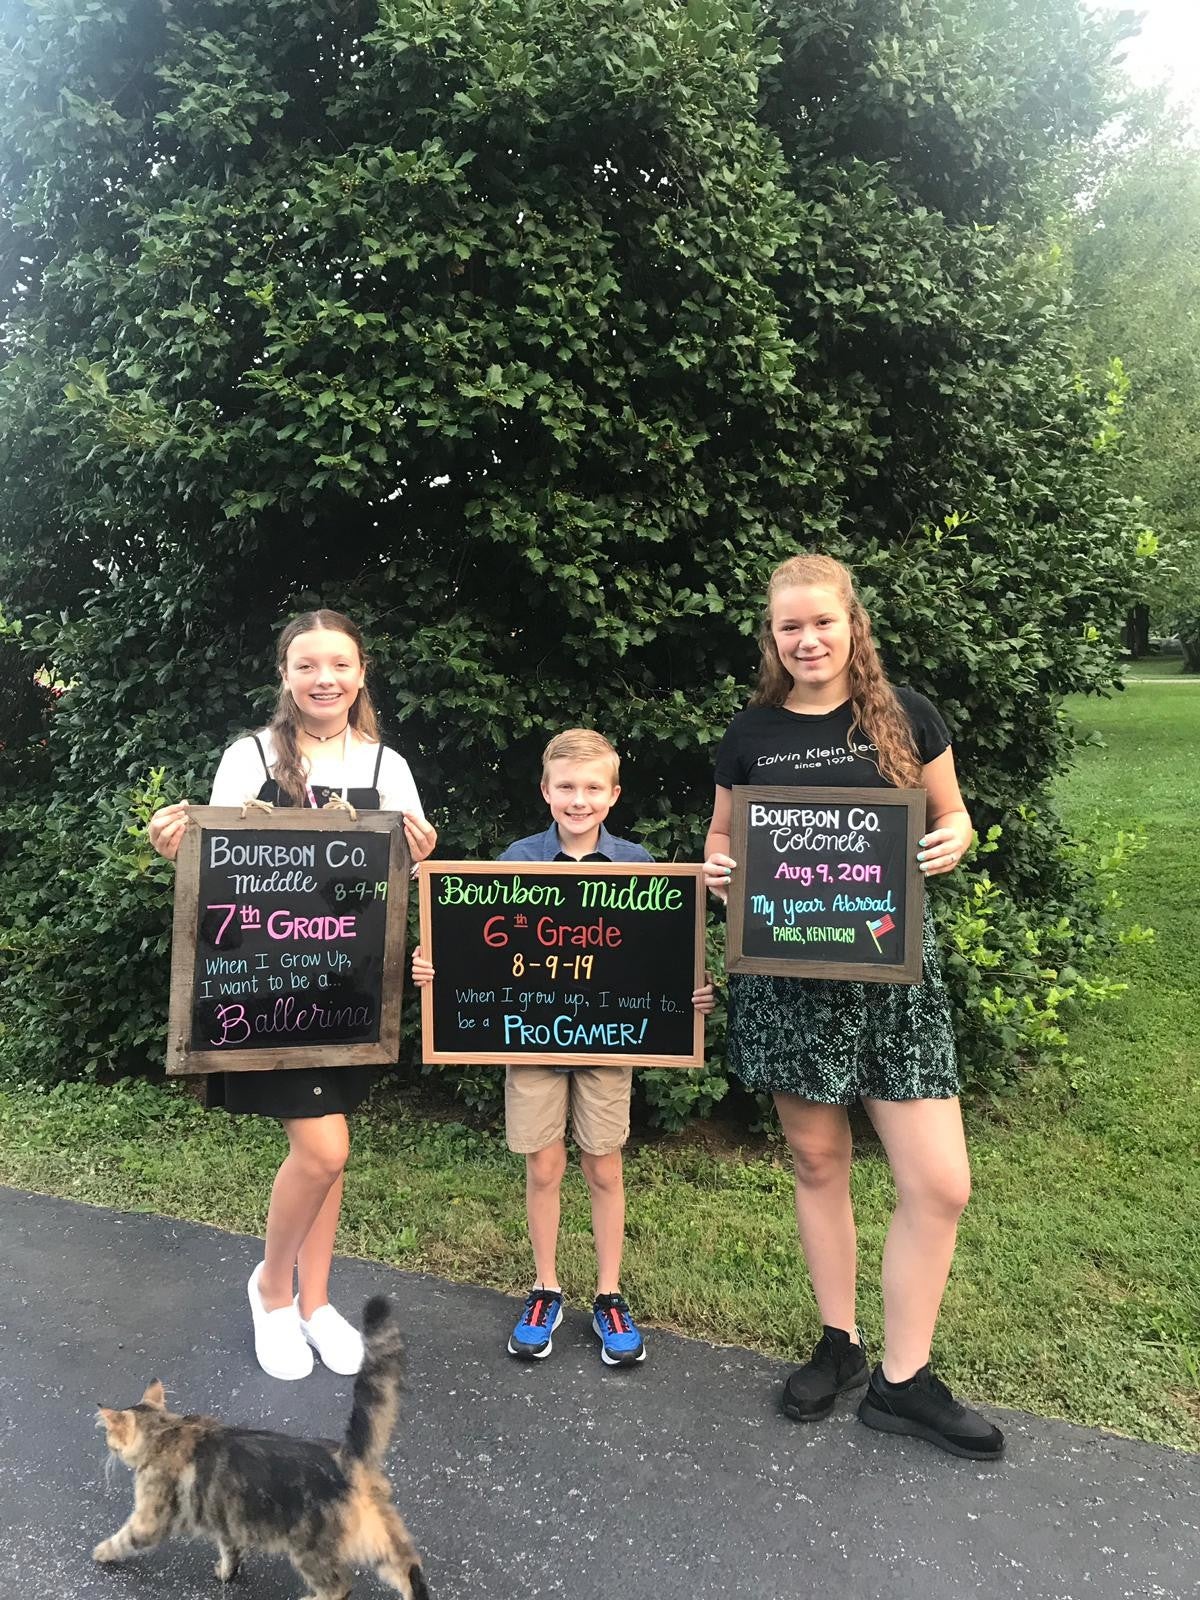 BOURBON CO.
Middle 8-9-19
7th GRADE
When I Grow Up,
I want to be a...
Ballerina
Bourbon Middle
6th Grade
8-9-19
When I grow up, I want to...
be a PRO GAMER!
Calvin Klein Jea
since 1978
BOURBON CO.
Colonels
Aug. 9, 2019
My Year Abroad
PARIS, KENTUCKY